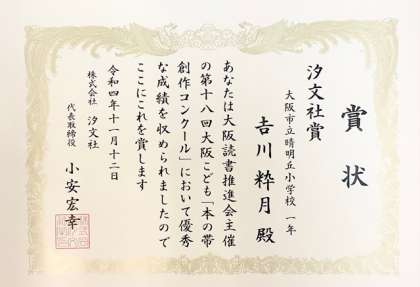 賞状
汐文社賞
大阪市立晴明丘小学校 一年
𠮷川粋月殿
あなたは大阪読書推進会主催
の第十八回大阪こども「本の帯
創作コンクール」において優秀
な成績を収められましたので
ここにこれを賞します
令和四年十一月十二日
株式会社 汐文社
代表取締役 小安宏幸